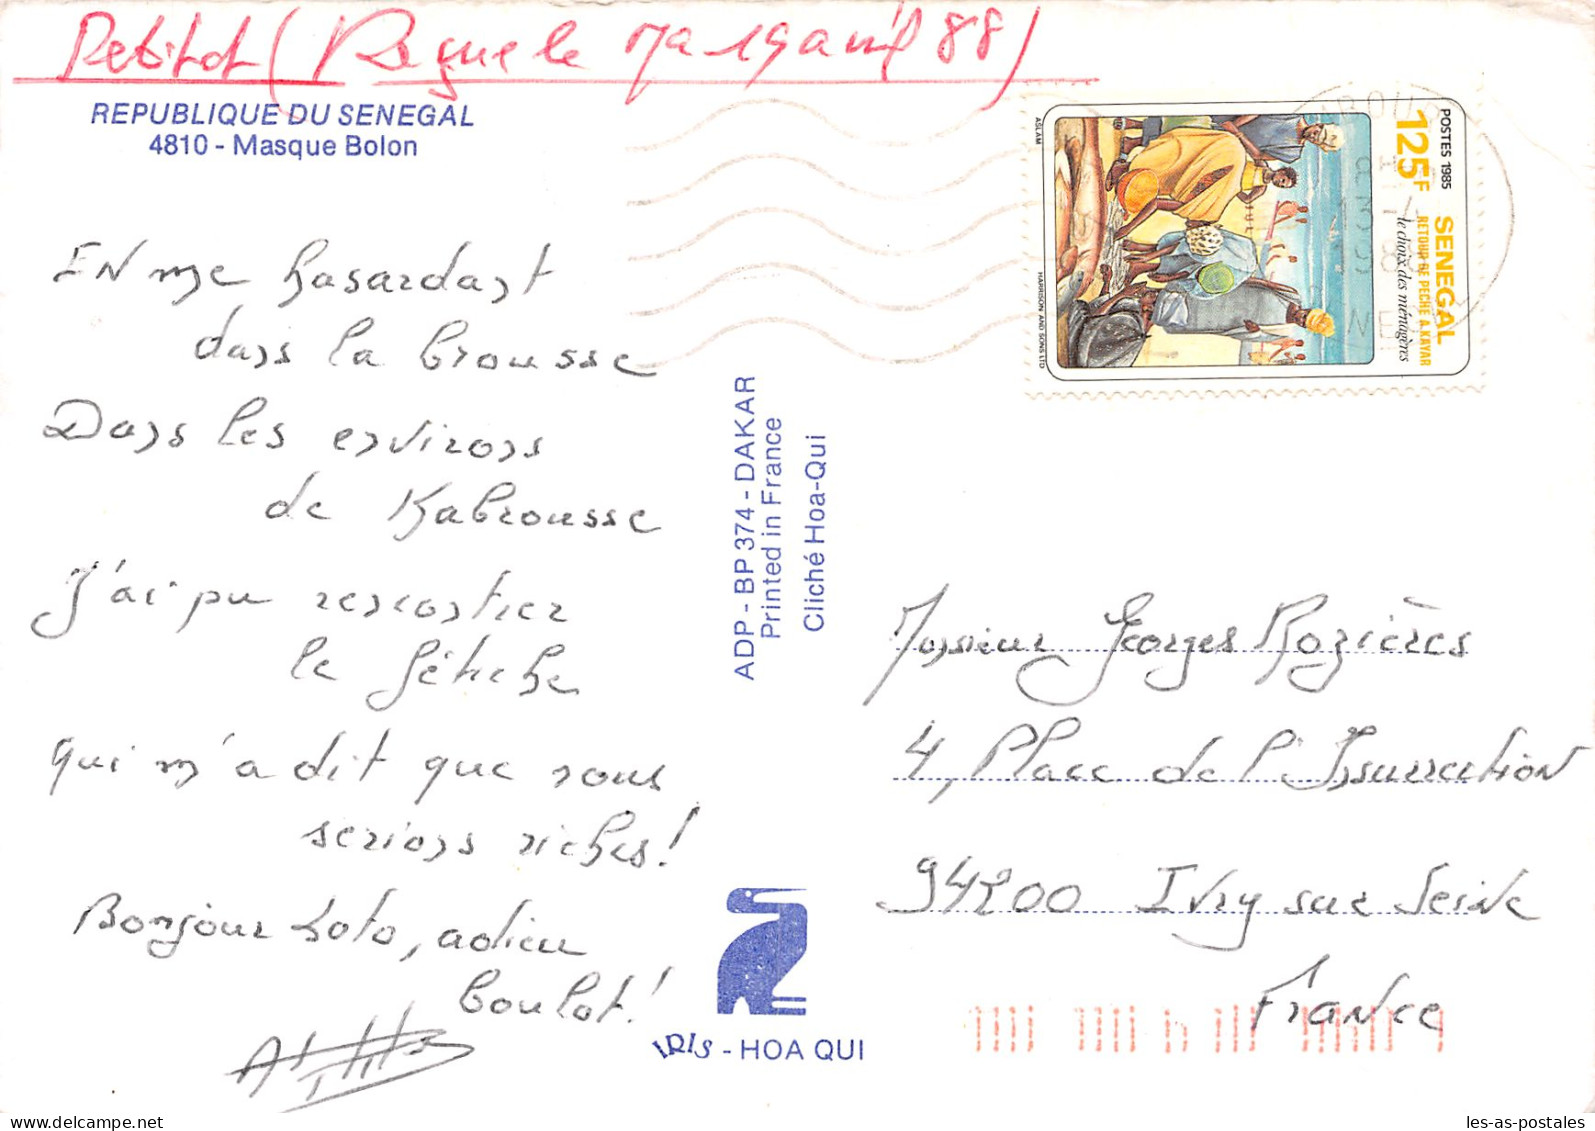 Petitot (Reçue le ma 19 avril 88)
REPUBLIQUE DU SENEGAL
4810 - Masque Bolon
EN me hasardant
dans la brousse
Dans les environs
de Kabrousse
J'ai pu rencontrer
le fétiche
qui m'a dit que nous
serions riches!
Bonjour Loto, adieu
boulot!
ADP - BP 374 - DAKAR
Printed in France
Cliché Hoa-Qui
IRIS - HOA QUI
POSTES 1985
125F
SENEGAL
RETOUR DE PECHE A KAYAR
le choix des ménagères
ASLAM
HARRISON AND SONS LTD
Monsieur Georges Rozières
4, Place de l'Insurrection
94200 Ivry sur Seine
France
les-as-postales